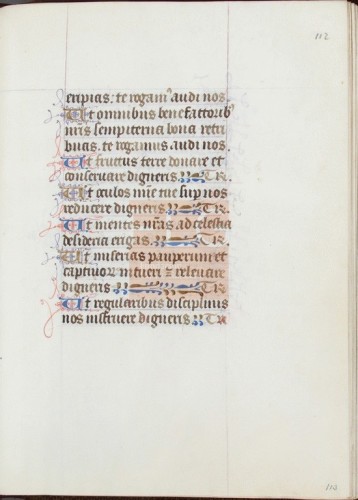 112
eripias. te rogam⁹ audi nos
Ut omnibus benefactorib⁹
nr̄is sempiterna bona retri
buas. te rogamus audi nos.
Ut fructus terre donare et
conseruare digneris. TR.
Ut oculos mīe tue sup nos
reducere digneris. TR.
Ut mentes nr̄as. ad celestia
desideria erigas. TR.
Ut miserias pauperum et
captiuoꝝ intueri ⁊ releuare
digneris TR.
Ut regularibus disciplinis
nos instruere digneris. TR